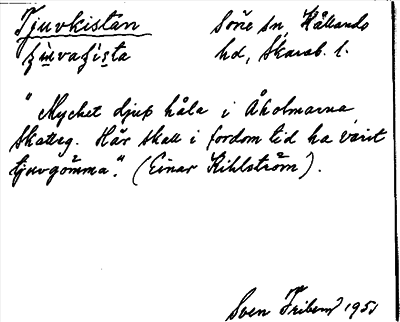 Tjuvkistan Sörie sn, Kållands
hd, Skarab. l.
"Mycket djup håla i Åkolmarna,
skatteg. Här skall i fordom tid ha varit
tjuvgömma." (Einar Kihlström).
Sven 1951